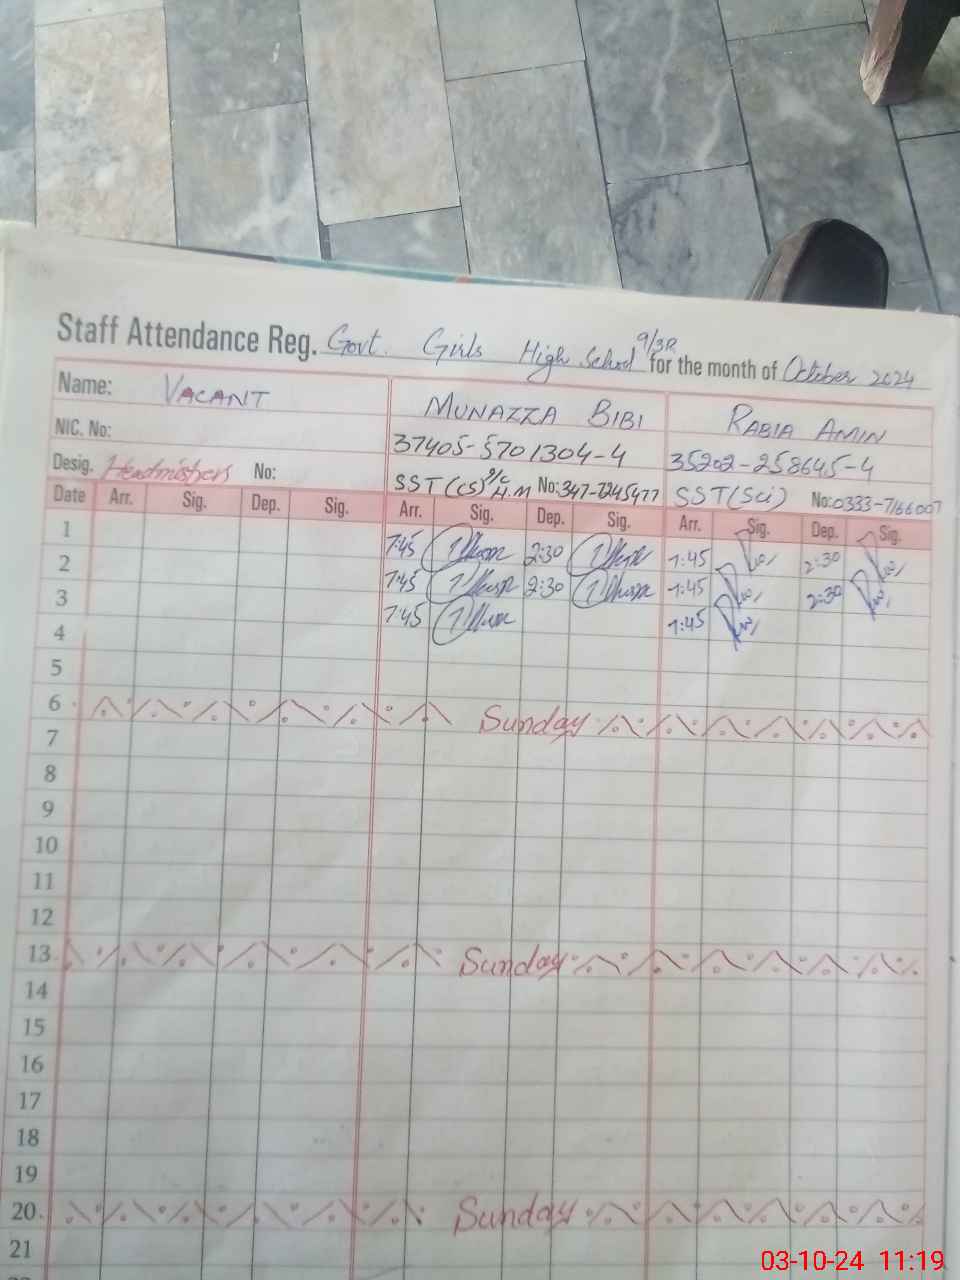 Staff Attendance Reg. Govt. Girls High School 9/3R for the month of October 2024
Name: VACANT MUNAZZA BIBI RABIA AMIN
NIC. No: 37405-5701304-4 35202-258645-4
Desig. Headmistress No: SST (CS) I/C H.M No: 347-7245477 SST (Sci) No: 0333-7166007
Date Arr. Sig. Dep. Sig. Arr. Sig. Dep. Sig. Arr. Sig. Dep. Sig.
1 7:45 2:30 7:45 2:30
2 7:45 2:30 7:45 2:30
3 7:45 7:45
4
5
6 Sunday
7
8
9
10
11
12
13 Sunday
14
15
16
17
18
19
20 Sunday
21
03-10-24 11:19